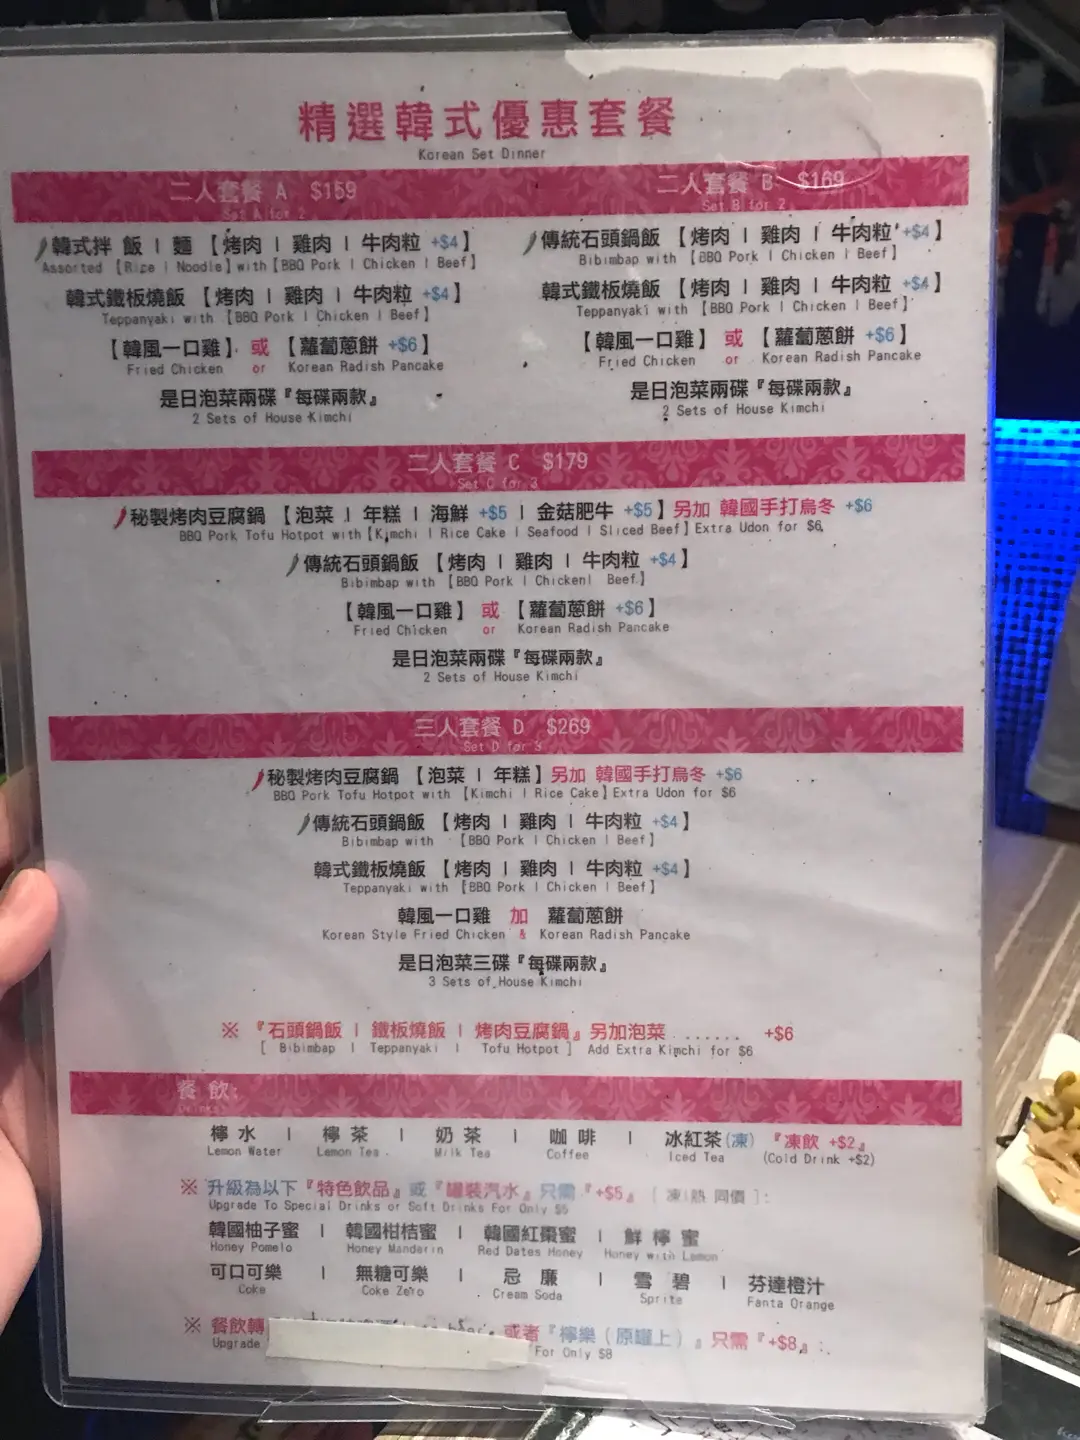 精選韓式優惠套餐
Korean Set Dinner
二人套餐 A $159
Set A for 2
韓式拌 飯 | 麵 【烤肉 | 雞肉 | 牛肉粒 +$4】
Assorted [Rice | Noodle] with [BBQ Pork | Chicken | Beef]
韓式鐵板燒飯 【烤肉 | 雞肉 | 牛肉粒 +$4】
Teppanyaki with [BBQ Pork | Chicken | Beef]
【韓風一口雞】 或 【蘿蔔蔥餅 +$6】
Fried Chicken or Korean Radish Pancake
是日泡菜兩碟『每碟兩款』
2 Sets of House Kimchi
二人套餐 B $169
Set B for 2
傳統石頭鍋飯 【烤肉 | 雞肉 | 牛肉粒 +$4】
Bibimbap with [BBQ Pork | Chicken | Beef]
韓式鐵板燒飯 【烤肉 | 雞肉 | 牛肉粒 +$4】
Teppanyaki with [BBQ Pork | Chicken | Beef]
【韓風一口雞】 或 【蘿蔔蔥餅 +$6】
Fried Chicken or Korean Radish Pancake
是日泡菜兩碟『每碟兩款』
2 Sets of House Kimchi
二人套餐 C $179
Set C for 3
秘製烤肉豆腐鍋 【泡菜 | 年糕 | 海鮮 +$5 | 金菇肥牛 +$5】另加 韓國手打烏冬 +$6
BBQ Pork Tofu Hotpot with [Kimchi | Rice Cake | Seafood | Sliced Beef] Extra Udon for $6
傳統石頭鍋飯 【烤肉 | 雞肉 | 牛肉粒 +$4】
Bibimbap with [BBQ Pork | Chicken| Beef]
【韓風一口雞】 或 【蘿蔔蔥餅 +$6】
Fried Chicken or Korean Radish Pancake
是日泡菜兩碟『每碟兩款』
2 Sets of House Kimchi
三人套餐 D $269
Set D for 3
秘製烤肉豆腐鍋 【泡菜 | 年糕】另加 韓國手打烏冬 +$6
BBQ Pork Tofu Hotpot with [Kimchi | Rice Cake] Extra Udon for $6
傳統石頭鍋飯 【烤肉 | 雞肉 | 牛肉粒 +$4】
Bibimbap with [BBQ Pork | Chicken | Beef]
韓式鐵板燒飯 【烤肉 | 雞肉 | 牛肉粒 +$4】
Teppanyaki with [BBQ Pork | Chicken | Beef]
韓風一口雞 加 蘿蔔蔥餅
Korean Style Fried Chicken & Korean Radish Pancake
是日泡菜三碟『每碟兩款』
3 Sets of House Kimchi
※ 『石頭鍋飯 | 鐵板燒飯 | 烤肉豆腐鍋』另加泡菜 ...... +$6
[ Bibimbap | Teppanyaki | Tofu Hotpot ] Add Extra Kimchi for $6
餐 飲:
Drinks
檸 水 | 檸 茶 | 奶 茶 | 咖 啡 | 冰紅茶(凍) 『凍飲 +$2』
Lemon Water Lemon Tea Milk Tea Coffee Iced Tea (Cold Drink +$2)
※ 升級為以下『特色飲品』或『罐裝汽水』只需『+$5』 [ 凍|熱 同價 ]:
Upgrade To Special Drinks or Soft Drinks For Only $5
韓國柚子蜜 | 韓國柑桔蜜 | 韓國紅棗蜜 | 鮮 檸 蜜
Honey Pomelo Honey Mandarin Red Dates Honey Honey with Lemon
可口可樂 | 無糖可樂 | 忌 廉 | 雪 碧 | 芬達橙汁
Coke Coke Zero Cream Soda Sprite Fanta Orange
※ 餐飲轉 或者『檸樂(原罐上)』只需『+$8』:
Upgrade For Only $8